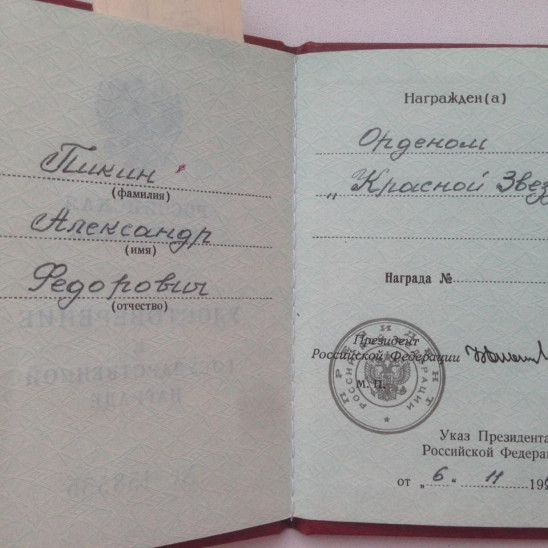 Пикин
(фамилия)
Александр
(имя)
Федорович
(отчество)
Награжден(а)
Орденом
„Красной Звез
Награда №
Президент
Российской Федерации
М. П.
ПРЕЗИДЕНТ
РОССИЙСКОЙ ФЕДЕРАЦИИ
Указ Президента
Российской Федера
от „6. 11 199